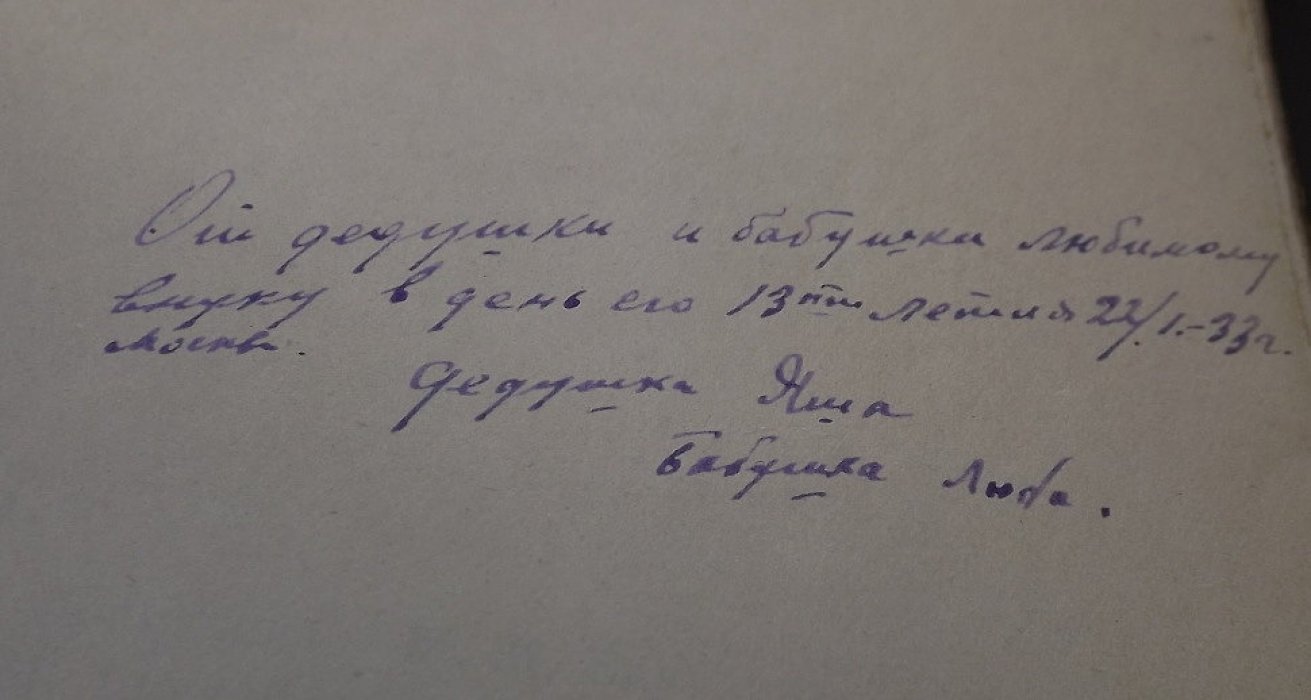 От дедушки и бабушки любимому
внуку в день его 13ти летия 22/I.-33г.
Москва.
Дедушка Яша
Бабушка Люба.